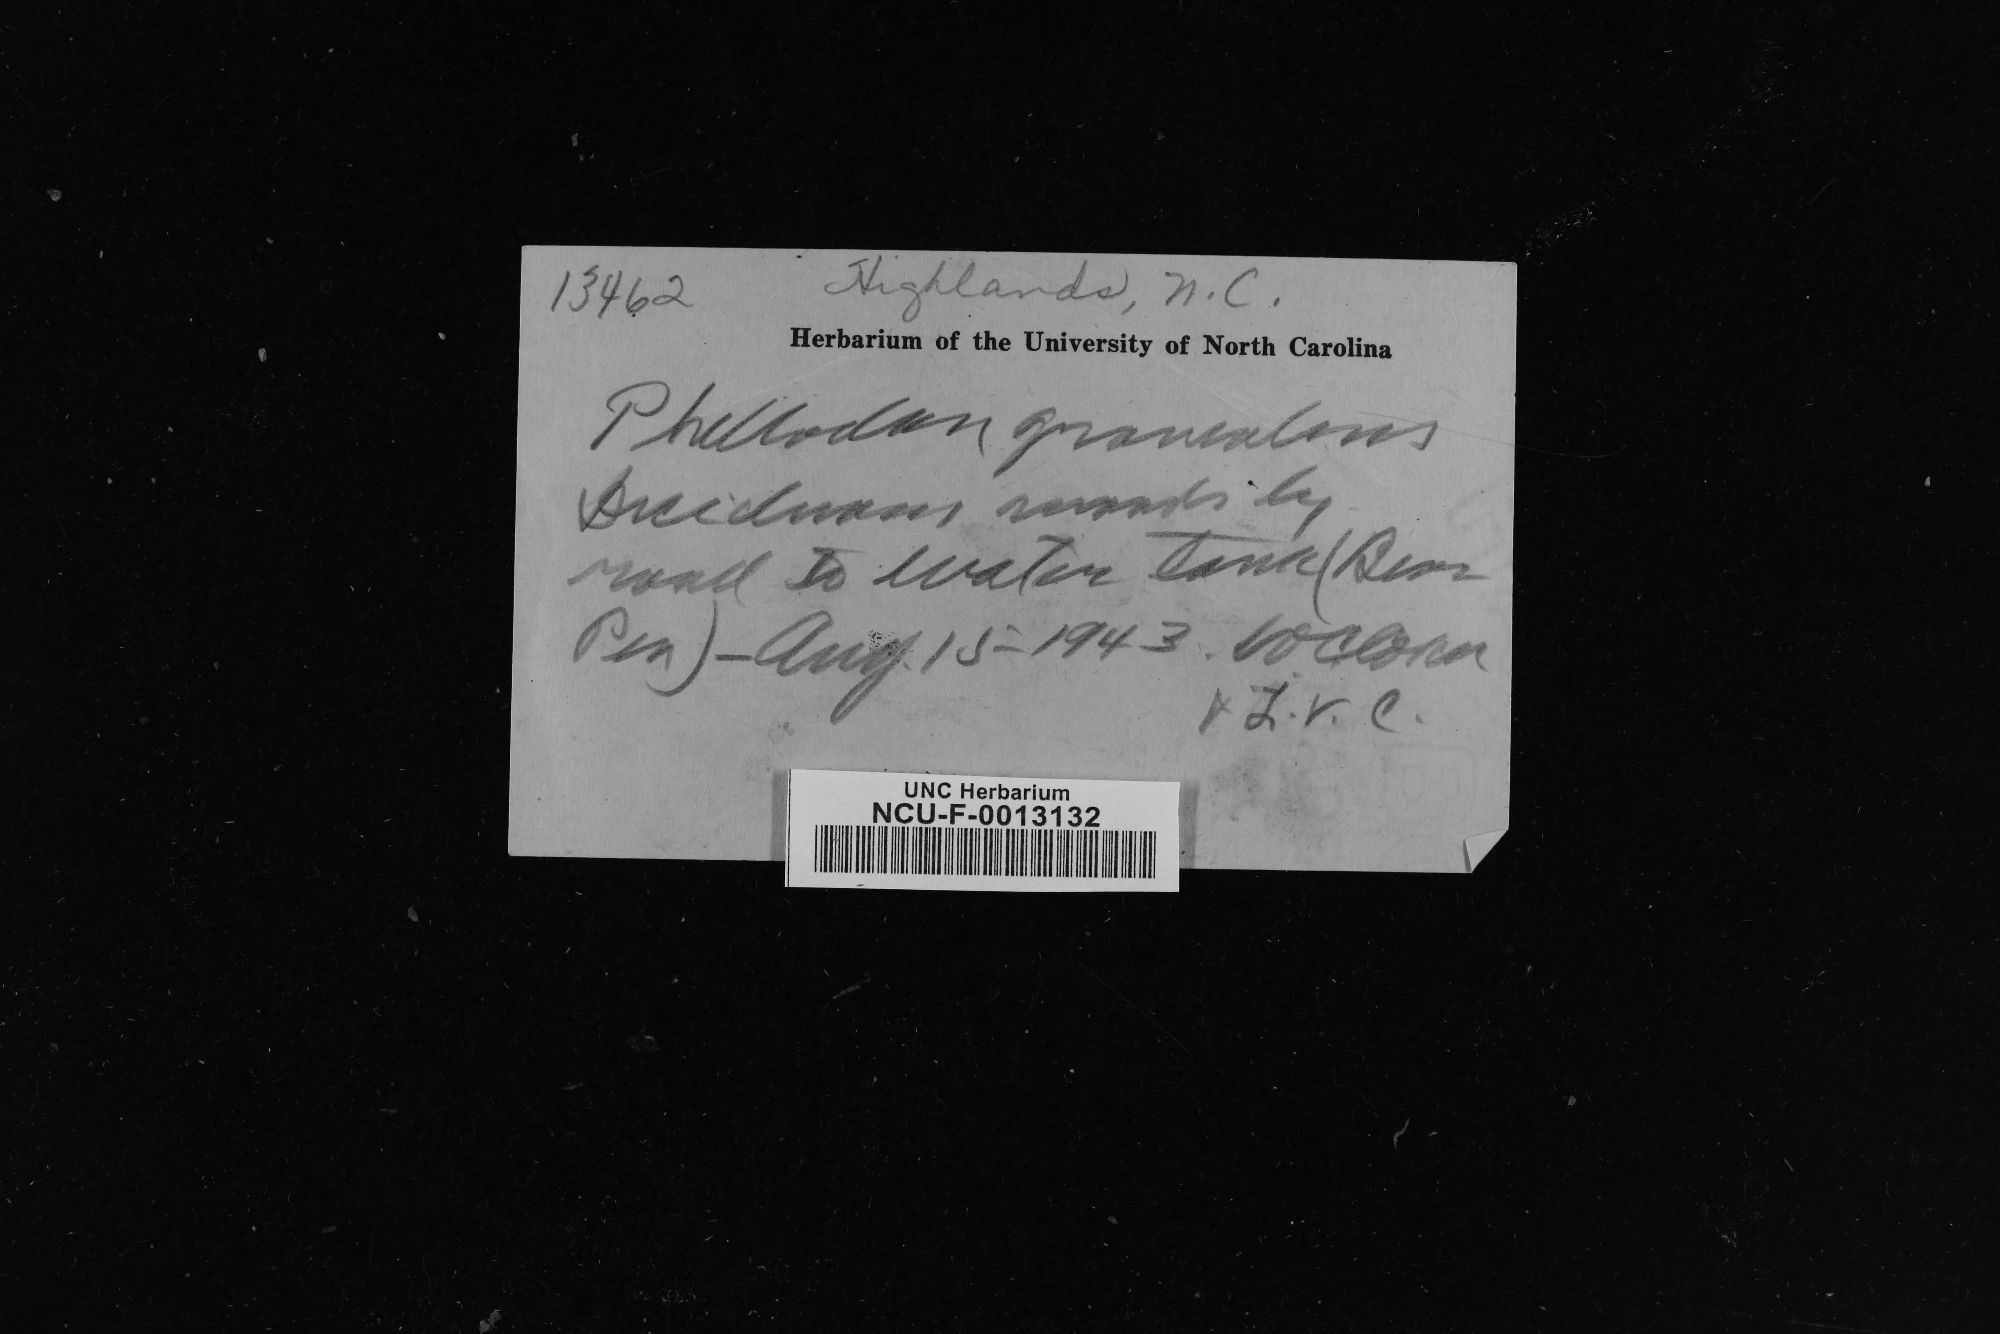 13462 Highlands, N.C.
Herbarium of the University of North Carolina
Phellodon graveolens
Deciduous woods by
road to water tank (Bear
Pen) - Aug. 15 - 1943. WC Coker
& L.V.C.
UNC Herbarium
NCU-F-0013132